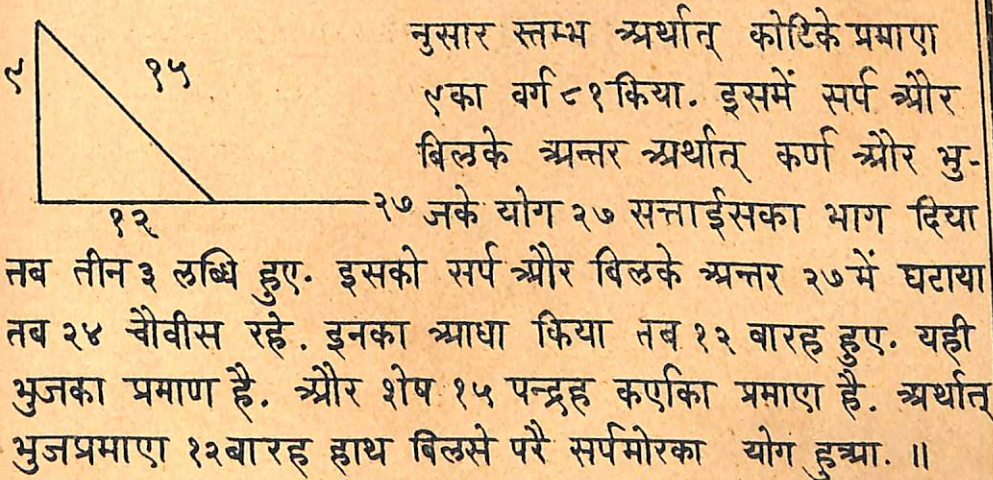 नुसार स्तम्भ अर्थात् कोटिके प्रमाण
९ १५
९का वर्ग ८१ किया. इसमें सर्प और
बिलके अन्तर अर्थात् कर्ण और भु-
१२ २७ जके योग २७ सत्ताईसका भाग दिया
तब तीन ३ लब्धि हुए. इसको सर्प और बिलके अन्तर २७ में घटाया
तब २४ चौवीस रहे. इनका आधा किया तब १२ बारह हुए. यही
भुजका प्रमाण है. और शेष १५ पन्द्रह कर्णका प्रमाण है. अर्थात्
भुजप्रमाण १२ बारह हाथ बिलसे परै सर्पमोरका योग हुआ. ॥